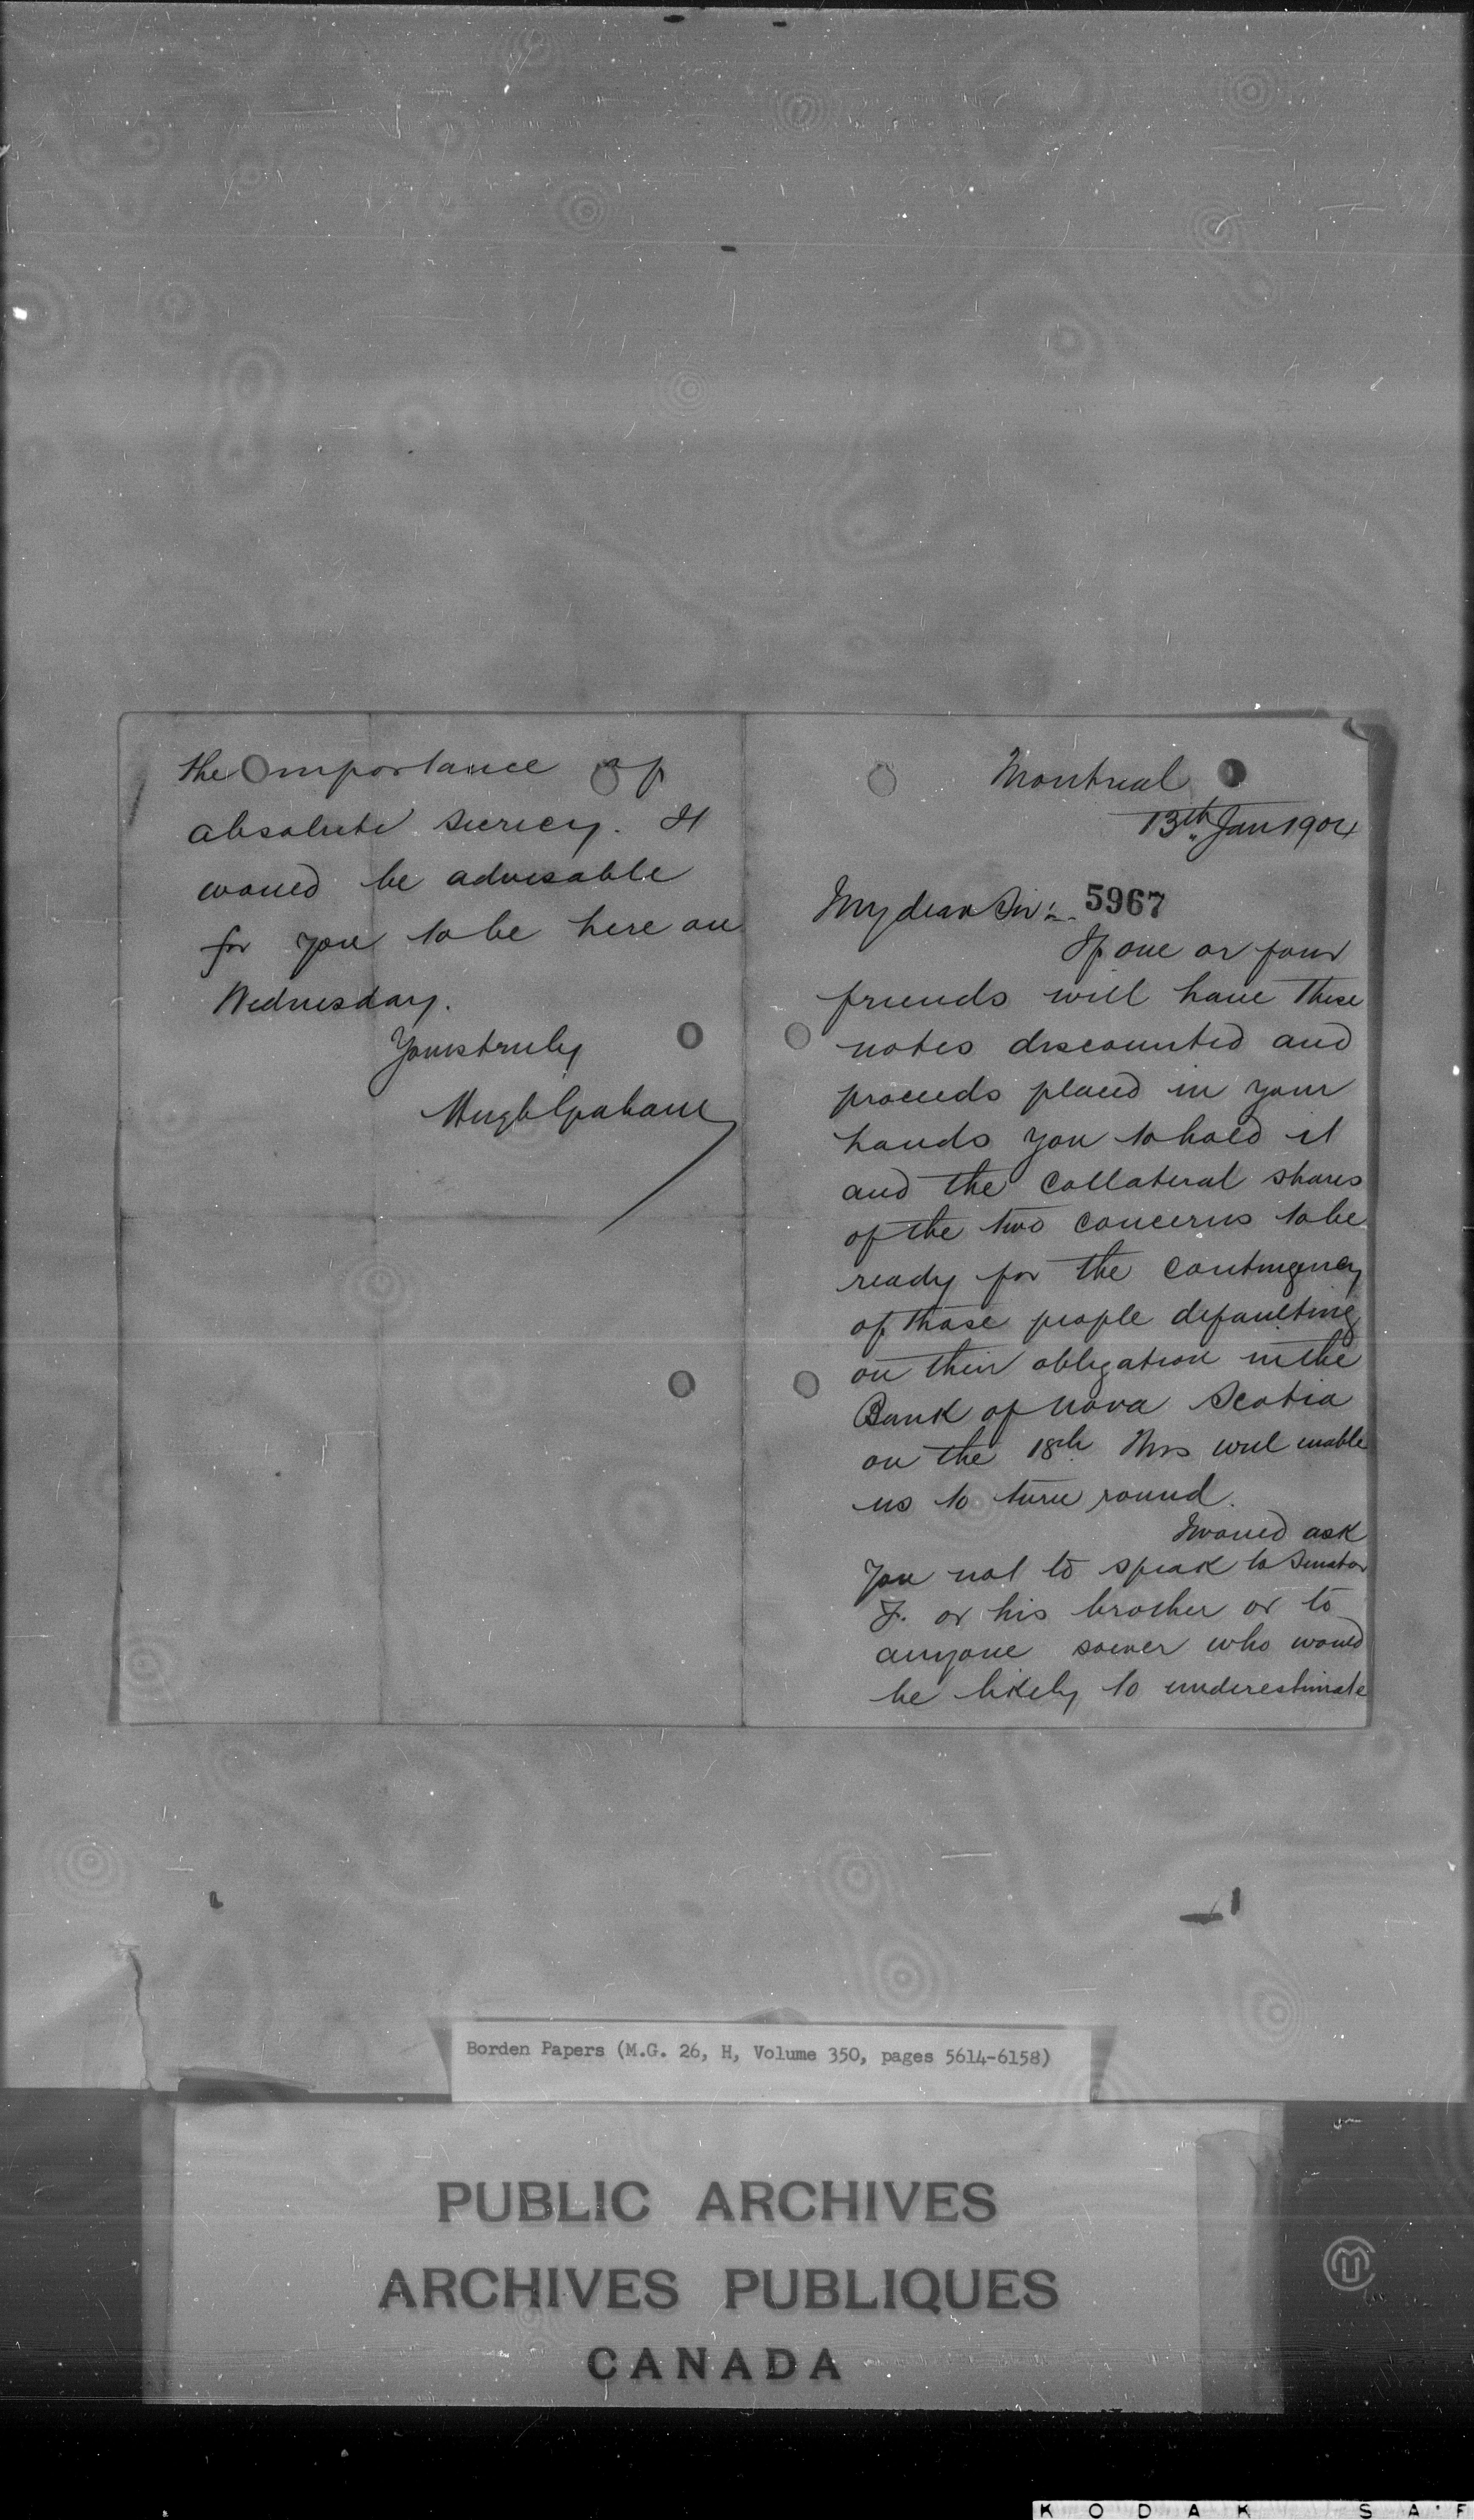 Montreal
13th Jan 1904
5967
My dear Sir:-
If one or four
friends will have these
notes discounted and
proceeds placed in your
hands you to hold it
and the collateral shares
of the two concerns to be
ready for the contingency
of those people defaulting
on their obligation in the
Bank of Nova Scotia
on the 18th this will enable
us to turn round.
I would ask
you not to speak to Senator
F. or his brother or to
anyone soever who would
be likely to underestimate
the importance of
absolute secrecy. It
would be advisable
for you to be here on
Wednesday.
Yours truly
Hugh Graham
Borden Papers (M.G. 26, H, Volume 350, pages 5614-6158)
PUBLIC ARCHIVES
ARCHIVES PUBLIQUES
CANADA
KODAK SAF